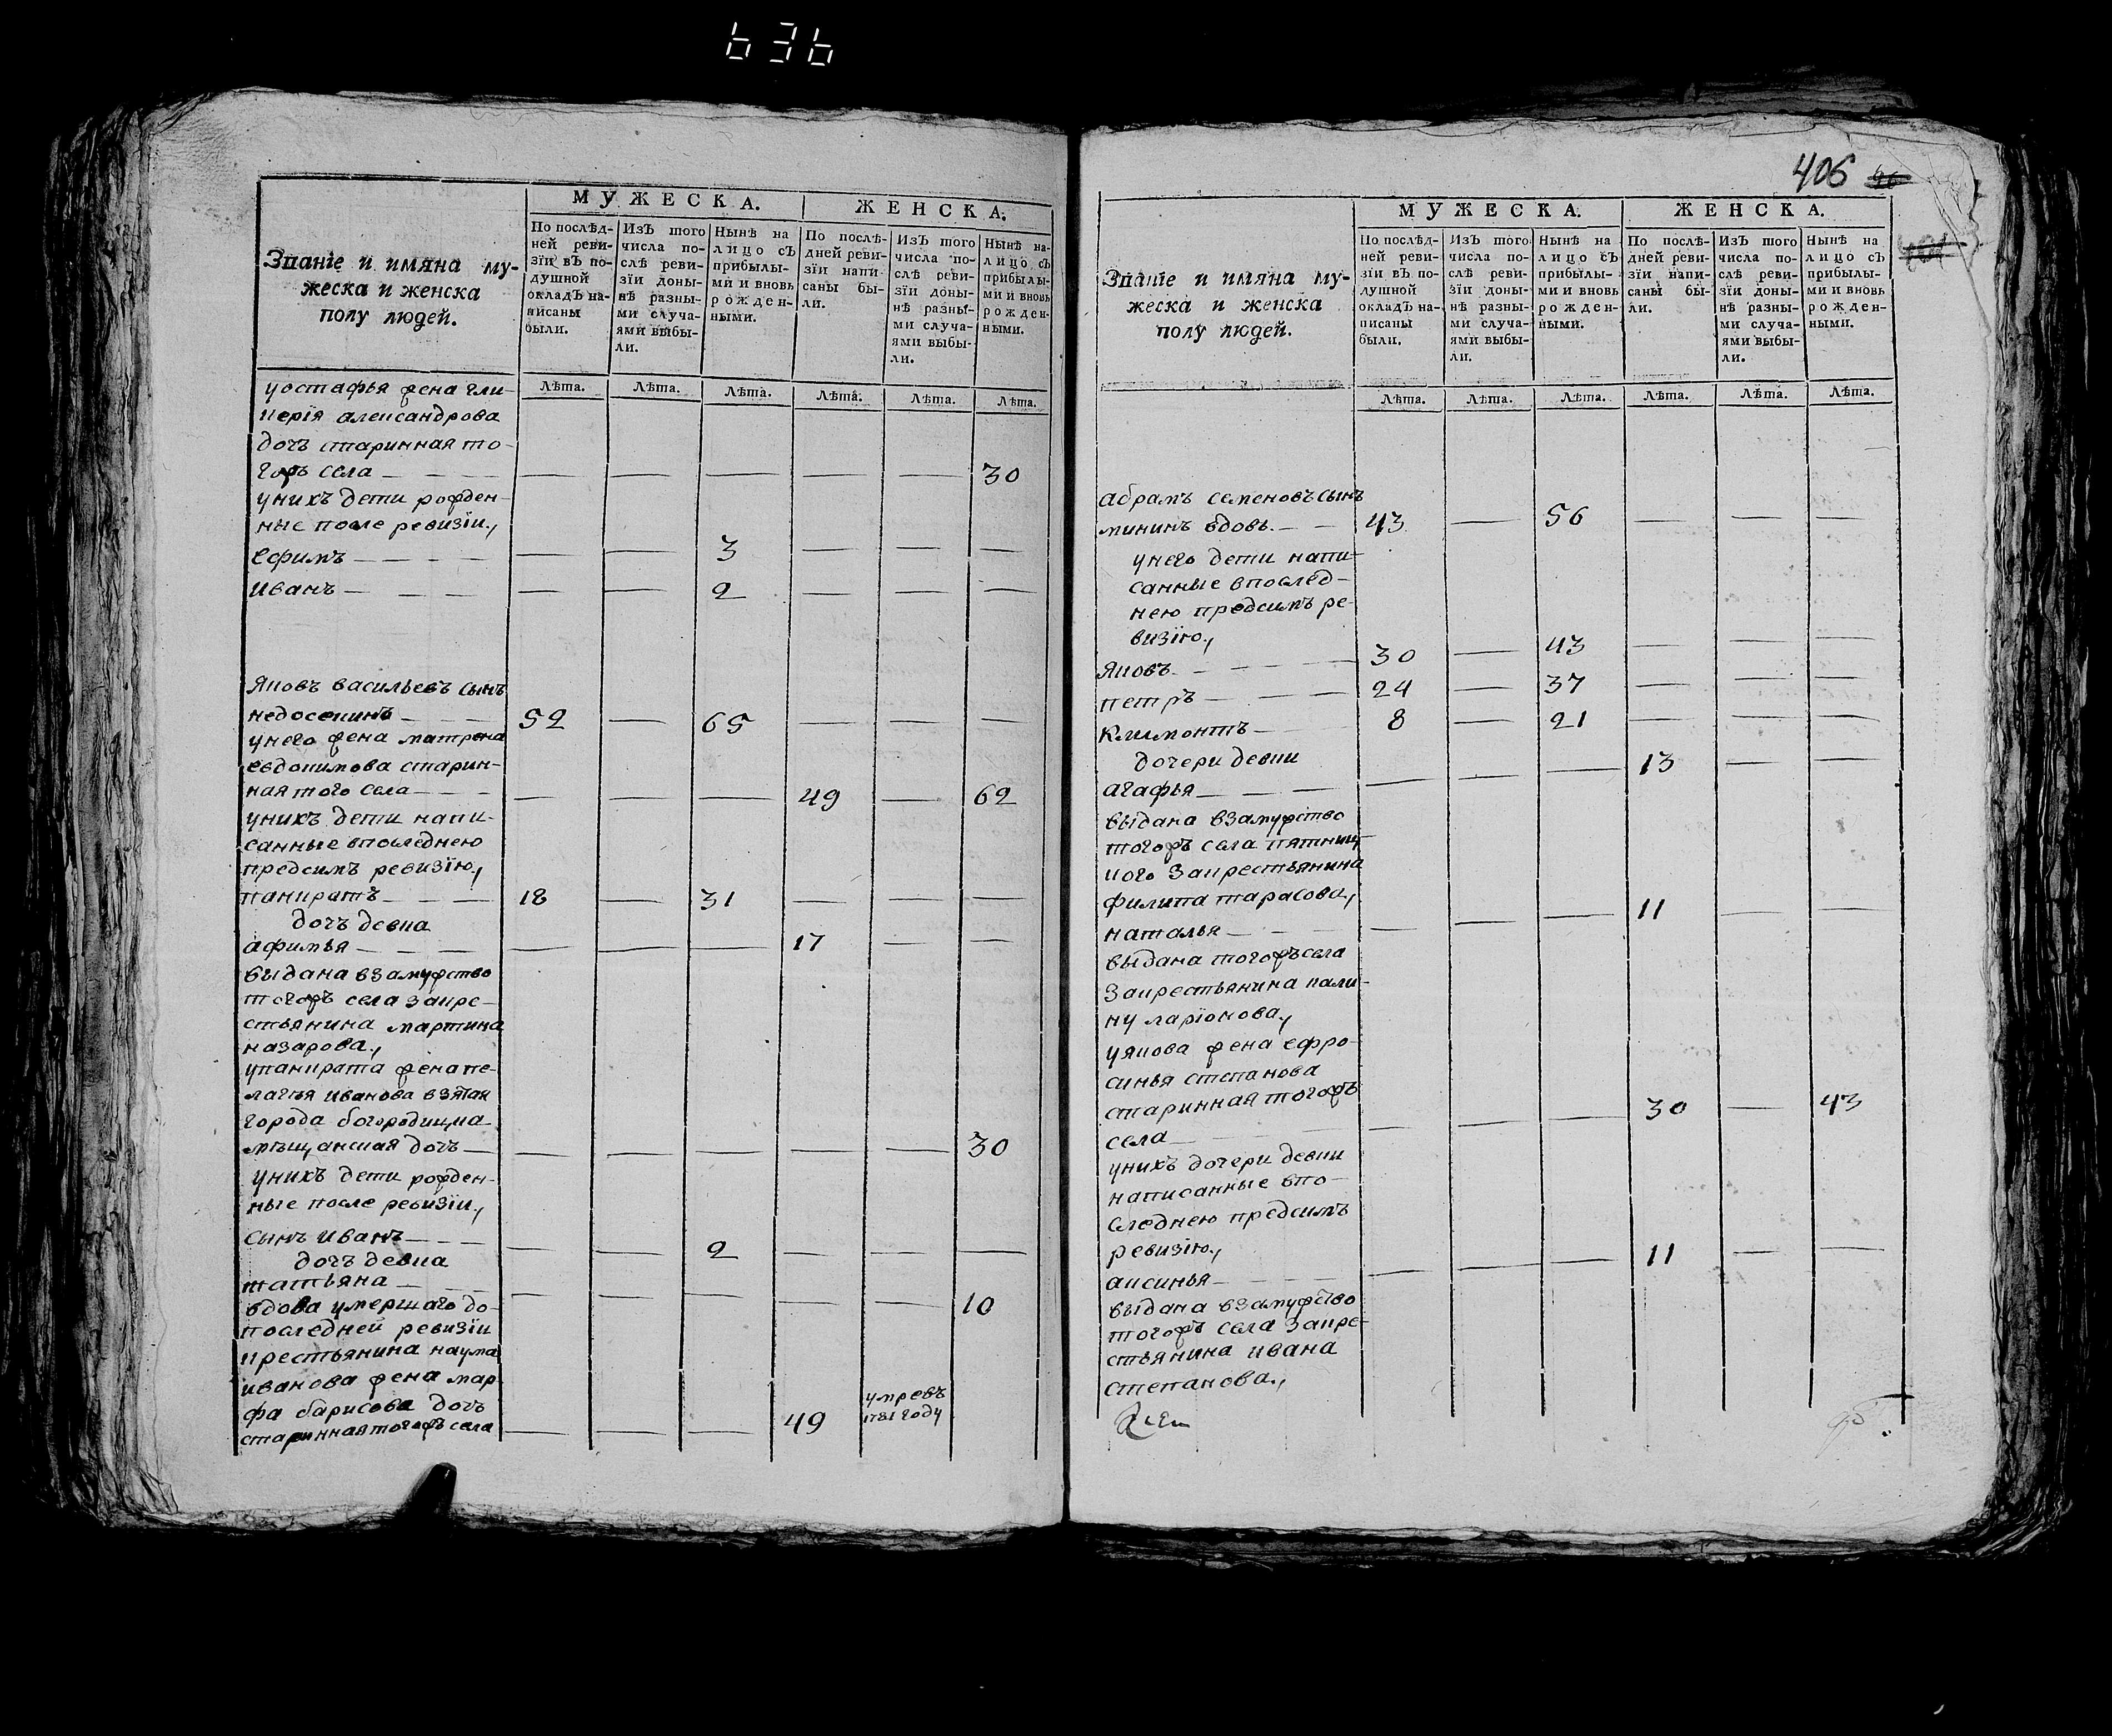 636
МУЖЕСКА.
ЖЕНСКА.
Званіе и имяна му-
жеска и женска
полу людей.
По послѣд-
ней реви-
зїи въ по-
душной
окладъ на-
писаны
были.
Изъ того
числа по-
слѣ реви-
зїи доны-
нѣ разны-
ми случа-
ями выбы-
ли.
Нынѣ на
лицо съ
прибылы-
ми и вновь
рожден-
ными.
По послѣ-
дней реви-
зїи напи-
саны бы-
ли.
Изъ того
числа по-
слѣ реви-
зїи доны-
нѣ разны-
ми случа-
ями выбы-
ли.
Нынѣ на-
лицо съ
прибылы-
ми и вновь
рожден-
ными.
Лѣта. Лѣта. Лѣта. Лѣта. Лѣта. Лѣта.
уостафья жена гли-
керія александрова
дочь старинная то-
гожъ села — — — — — — 30
унихъ дети рожден-
ные после ревизіи.,
Ефимъ — — 3 — — —
Иванъ — — 2 — — —
Яковъ васильевъ сынъ
недосекинъ 52 — 65 — — —
унего жена матрена
евдокимова старин-
ная того села — — — 49 — 62
унихъ дети напи-
санные впоследнею
предсимъ ревизїю.,
панкратъ 18 — 31 — — —
дочь девка
афимья — — — 17 — —
выдана взамужство
тогожъ села закре-
стьянина мартина
назарова.,
упанкрата жена пе-
лагья иванова взятая
города богородицка
мѣщанская дочь — — — — — 30
унихъ дети рожден-
ные после ревизїи.,
сынъ иванъ — — 2 — — —
дочь девка
татьяна — — — — — 10
вдова умершаго до
последней ревизїи
крестьянина наума
иванова жена мар-
фа барисова дочь
старинная тогожъ села — — — 49 умревъ
1781 году
406
МУЖЕСКА.
ЖЕНСКА.
Званіе и имяна му-
жеска и женска
полу людей.
По послѣд-
ней реви-
зїи въ по-
душной
окладъ на-
писаны
были.
Изъ того
числа по-
слѣ реви-
зїи доны-
нѣ разны-
ми случа-
ями выбы-
ли.
Нынѣ на
лицо съ
прибылы-
ми и вновь
рожден-
ными.
По послѣ-
дней реви-
зїи напи-
саны бы-
ли.
Изъ того
числа по-
слѣ реви-
зїи доны-
нѣ разны-
ми случа-
ями выбы-
ли.
Нынѣ на
лицо съ
прибылы-
ми и вновь
рожден-
ными.
Лѣта. Лѣта. Лѣта. Лѣта. Лѣта. Лѣта.
абрамъ семеновъ сынъ
мининъ вдовъ. 43 — 56 — — —
унего дети напи-
санные впослед-
нею предсимъ ре-
визїю.,
Яковъ 30 — 43 — — —
петръ 24 — 37 — — —
Климонтъ 8 — 21 — — —
дочери девки
агафья — — — 13 — —
выдана взамужство
тогожъ села пятниц-
кого закрестьянина
филипа тарасова.,
наталья — — — 11 — —
выдана тогожъ села
закрестьянина кали-
ну ларіонова.,
уякова жена ефро-
синья степанова
старинная тогожъ
села — — — 30 — 43
унихъ дочери девки
написанные впо-
следнею предсимъ
ревизїю.,
аксинья — — — 11 — —
выдана взамужство
тогожъ села закре-
стьянина ивана
степанова.,